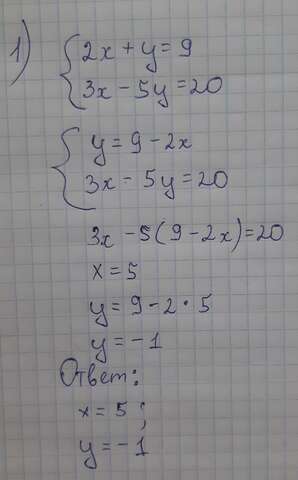 1)
{ 2x + y = 9
3x - 5y = 20
{ y = 9 - 2x
3x - 5y = 20
3x - 5(9 - 2x) = 20
x = 5
y = 9 - 2 · 5
y = -1
Ответ:
x = 5 ;
y = -1